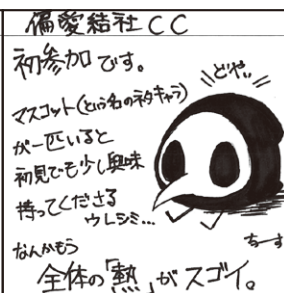 偏愛結社CC
初参加です。
マスコット(という名のネタキャラ)
が一匹いると
初見でも少し興味
持ってくださる
ウレシミ…
どやぁ
ちーす
なんかもう
全体の「熱」がスゴイ。